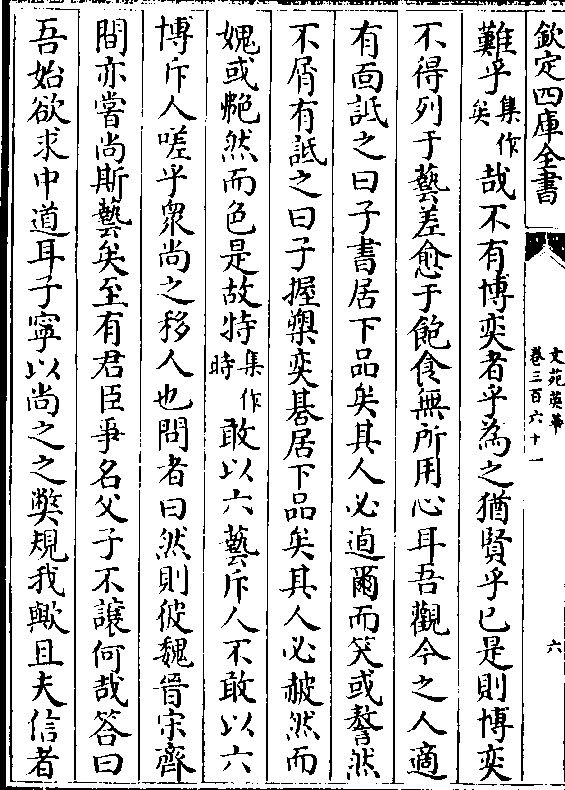 欽定四庫全書
文苑英華
卷三百六十一
六
難乎集作矣哉不有博奕者乎為之猶賢乎已是則博奕
不得列于藝差愈于飽食無所用心耳吾觀今之人適
有面詆之曰子書居下品矣其人必逌爾而笑或謷然
不屑有詆之曰子握槊奕碁居下品矣其人必赧然而
媿或艴然而色是故特集作時敢以六藝斥人不敢以六
博斥人嗟乎衆尚之移人也問者曰然則彼魏晉宋齊
間亦嘗尚斯藝矣至有君臣爭名父子不讓何哉答曰
吾始欲求中道耳子寧以尚之之獘規我歟且夫信者